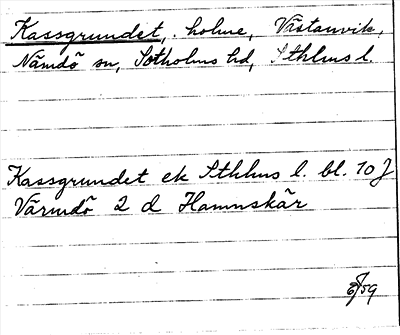 Kassgrundet, holme, Västanvik,
Nämdö sn, Sotholms hd, Sthlms l.
Kassgrundet ek Sthlms l. bl. 10 J
Värmdö 2 d Hamnskär